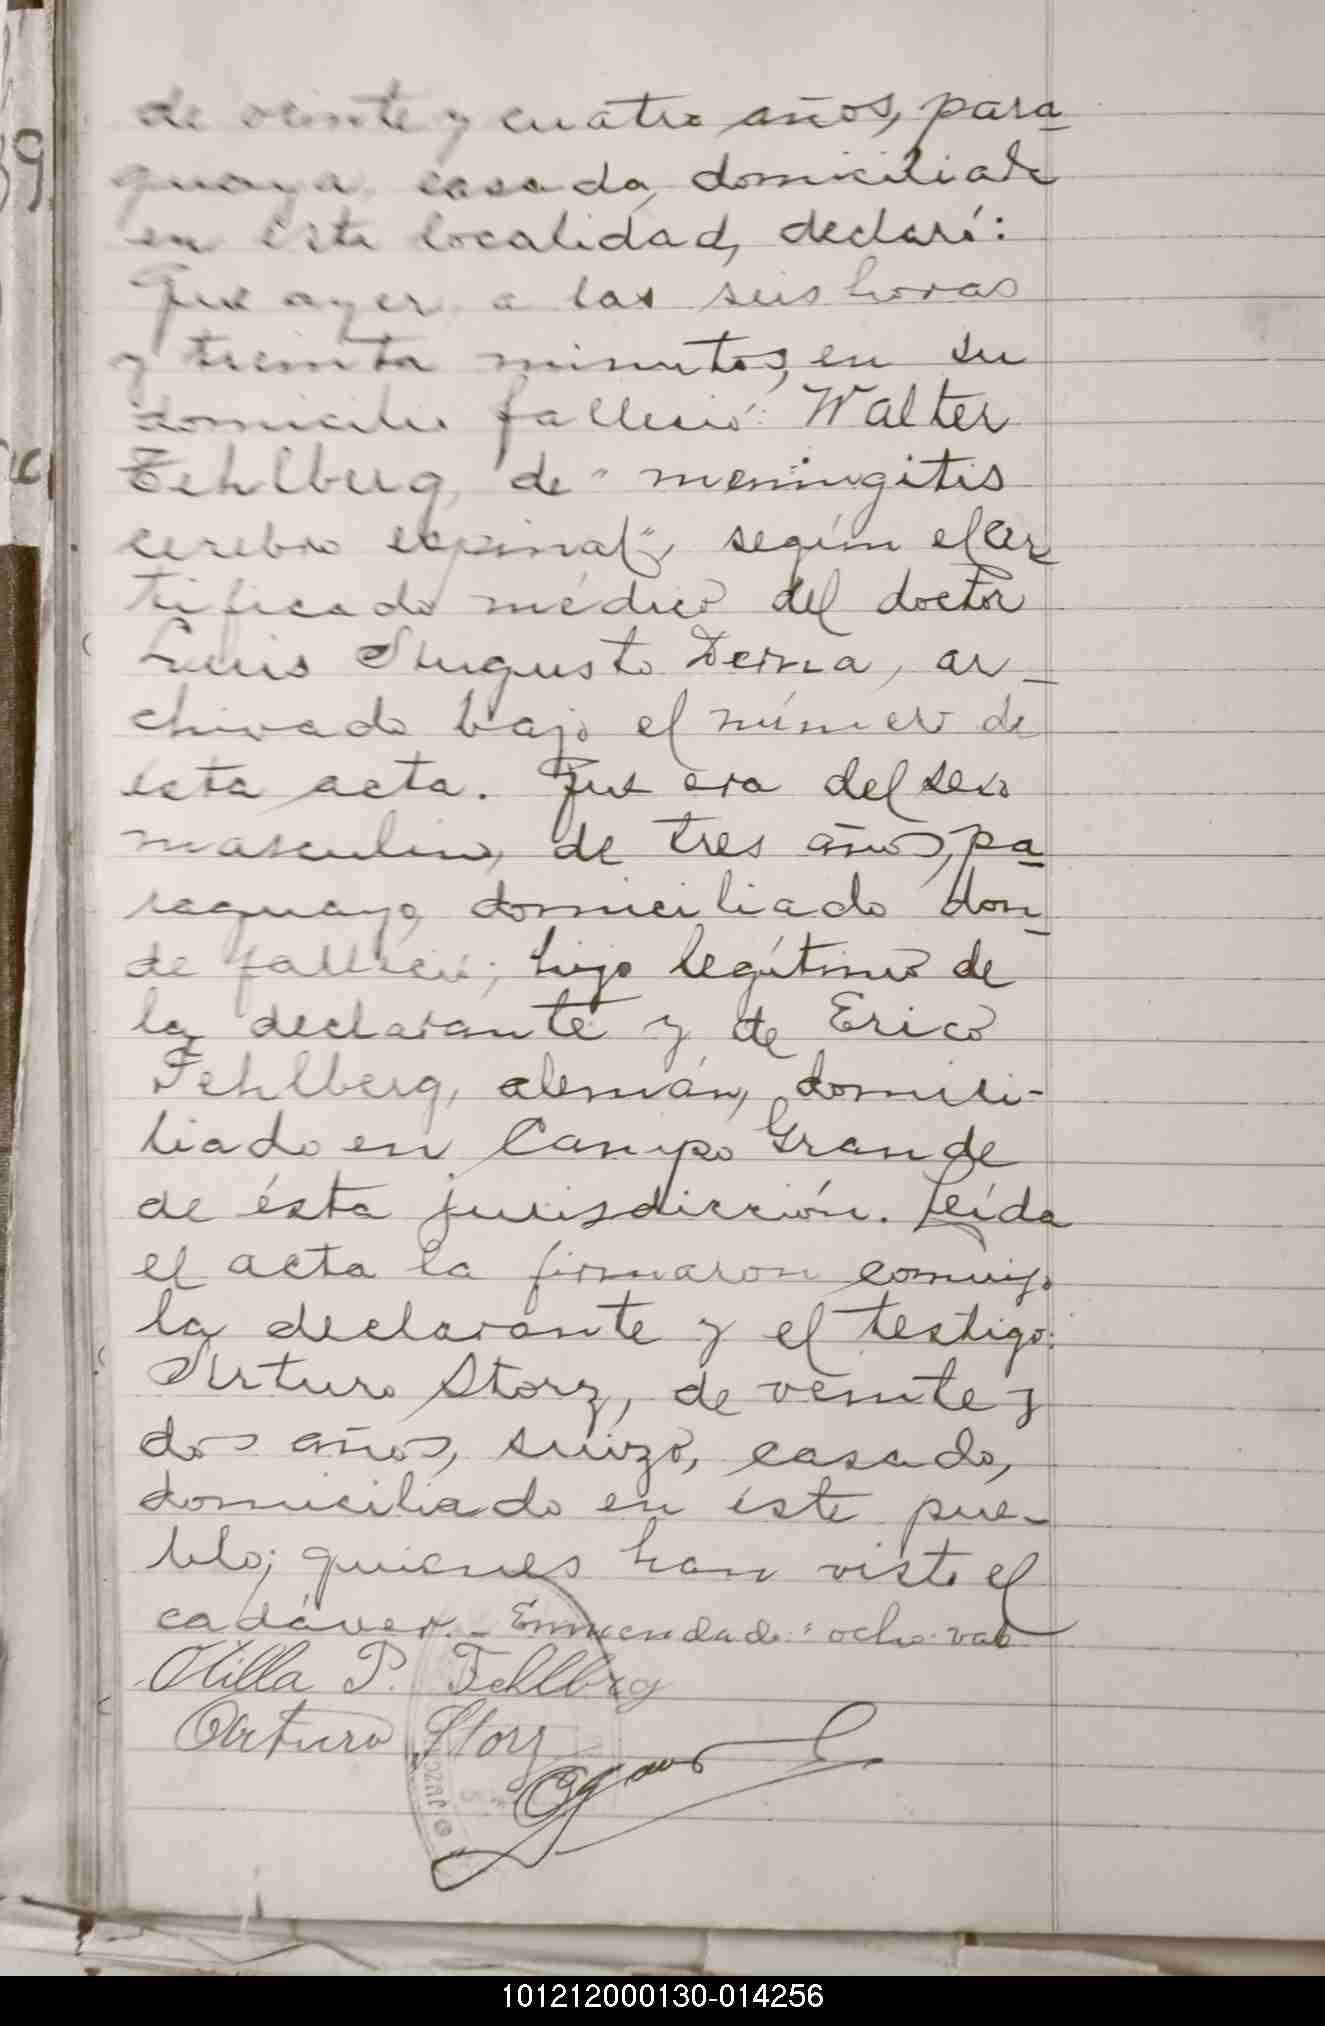 de veinte y cuatro años, para
guaya, casada, domiciliada
en ésta localidad, declaró:
Que ayer a las seis horas
y treinta minutos, en su
domicilio falleció: Walter
Fehlberg, de "meningitis
cerebro espinal", según el cer
tificado médico del doctor
Luis Augusto Derna, ar-
chivado bajo el número de
ésta acta. Que era del sexo
masculino, de tres años, pa
raguayo, domiciliado don
de falleció; hijo legítimo de
la declarante y de Erico
Fehlberg, alemán, domici-
liado en Campo Grande
de ésta jurisdicción. Leída
el acta la firmaron conmigo
la declarante y el testigo:
Arturo Storz, de veinte y
dos años, suizo, casado,
domiciliado en éste pue-
blo; quienes han visto el
cadáver. - Enmendado: ocho. vale
Otilla P. Fehlberg
Arturo Storz
JUZG
39
101212000130-014256